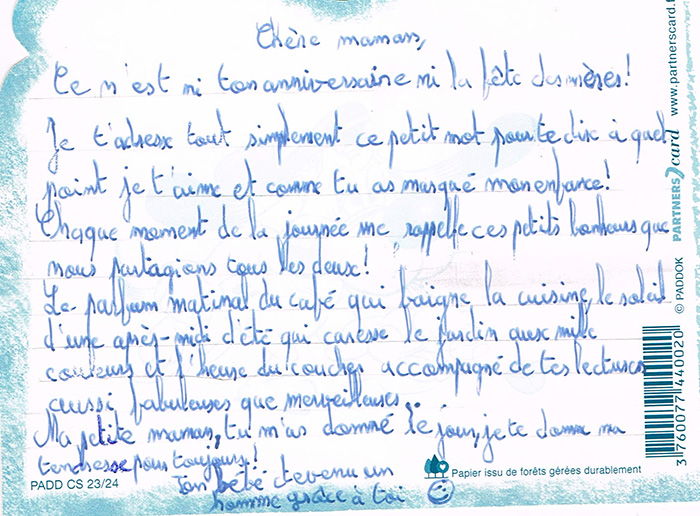 Chère maman,
Ce n'est ni ton anniversaire ni la fête des mères!
Je t'adresse tout simplement ce petit mot pour te dire à quel
point je t'aime et comme tu as marqué mon enfance!
Chaque moment de la journée me rappelle ces petits bonheurs que
nous partagions tous les deux!
Le parfum matinal du café qui baigne la cuisine, le soleil
d'une après-midi d'été qui caresse le jardin aux mille
couleurs et l'heure du coucher accompagné de tes lectures
aussi fabuleuses que merveilleuses...
Ma petite maman, tu m'as donné le jour, je te donne ma
tendresse pour toujours!
Ton bébé devenu un
homme grâce à toi
PADD CS 23/24
Papier issu de forêts gérées durablement
3 760077 440020
© PADDOK PARTNERS card www.partnerscard.fr